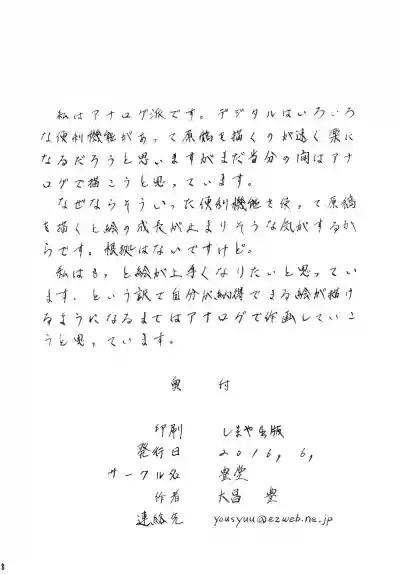 私はアナログ派です。デジタルはいろいろ
な便利機能があって原稿を描くのが速く楽に
なるだろうと思いますがまだ当分の間はアナ
ログで描こうと思っています。
なぜならそういった便利機能を使って原稿
を描くと絵の成長が止まりそうな気がするか
らです。根拠はないですけど。
私はもっと絵が上手くなりたいと思ってい
ます。という訳で自分が納得できる絵が描け
るようになるまではアナログで作画していこ
うと思っています。
奥 付
印刷 しまや出版
発行日 2016, 6,
サークル名 豊堂
作者 大昌 豊
連絡先 yousyuu@ezweb.ne.jp
8